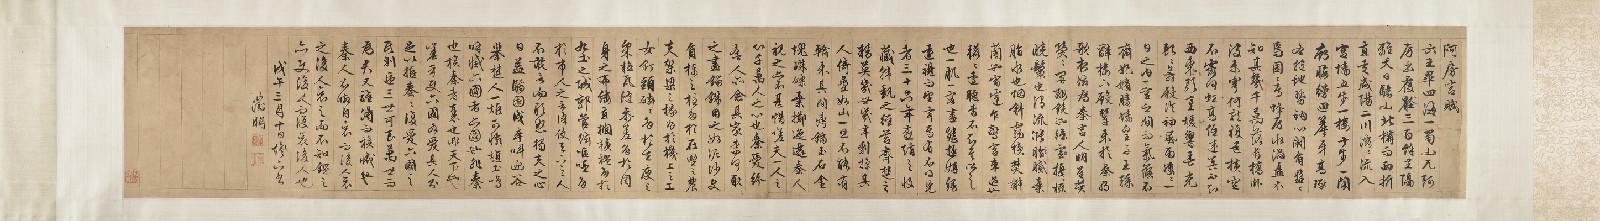 阿房宮賦
六王畢四海一蜀山兀阿
房出覆壓三百餘里隔
離天日驪山北構而西折
直走咸陽二川溶溶流入
宮墻五步一樓十步一閣
廊腰縵迴簷牙高啄
各抱地勢鈎心鬥角盤盤
焉囷囷焉蜂房水渦矗不
知其幾千萬落長橋臥
波未雲何龍複道橫空
不霽何虹高低冥迷不知
西東歌臺暖響春光
融融舞殿冷袖風雨凄凄一
日之內一宮之間而氣候不
齊妃嬪媵嬙王子王孫
辭樓下殿輦來於秦朝
歌夜弦為秦宮人明星熒
熒開粧鏡也綠雲擾擾梳
曉鬟也渭流漲膩棄
脂水也煙斜霧橫焚椒
蘭也雷霆乍驚宮車過也
轆轆遠聽杳不知其所之
也一肌一容盡態極妍縵
立遠視而望幸焉有不得見
者三十六年燕趙之收
藏韓魏之經營齊楚之
精英幾世幾年剽掠其
人倚疊如山一旦不能有
輸來其間鼎鐺玉石金
塊珠礫棄擲邐迤秦人
視之亦不甚惜嗟夫一人之
心千萬人之心也秦愛紛
奢人亦念其家奈何取
之盡錙銖用之如泥沙使
負棟之柱多於南畝之農
夫架梁之椽多於機上之工
女釘頭磷磷多於在庾之
粟粒瓦縫參差多於周
身之帛縷直欄橫檻多於
九土之城郭管絃嘔啞多
於市人之言語使天下之人
不敢言而敢怒獨夫之心
日益驕固戍卒叫函谷
舉楚人一炬可憐焦土嗚
呼滅六國者六國也非秦
也族秦者秦也非天下也
嗟夫使六國各愛其人則
足以拒秦秦復愛六國之
人則遞三世可至萬世而
為君誰得而族滅也
秦人不暇自哀而後人哀
之後人哀之而不鑒之
亦使後人而復哀後人也
戊午三月十日燈下書
徵明